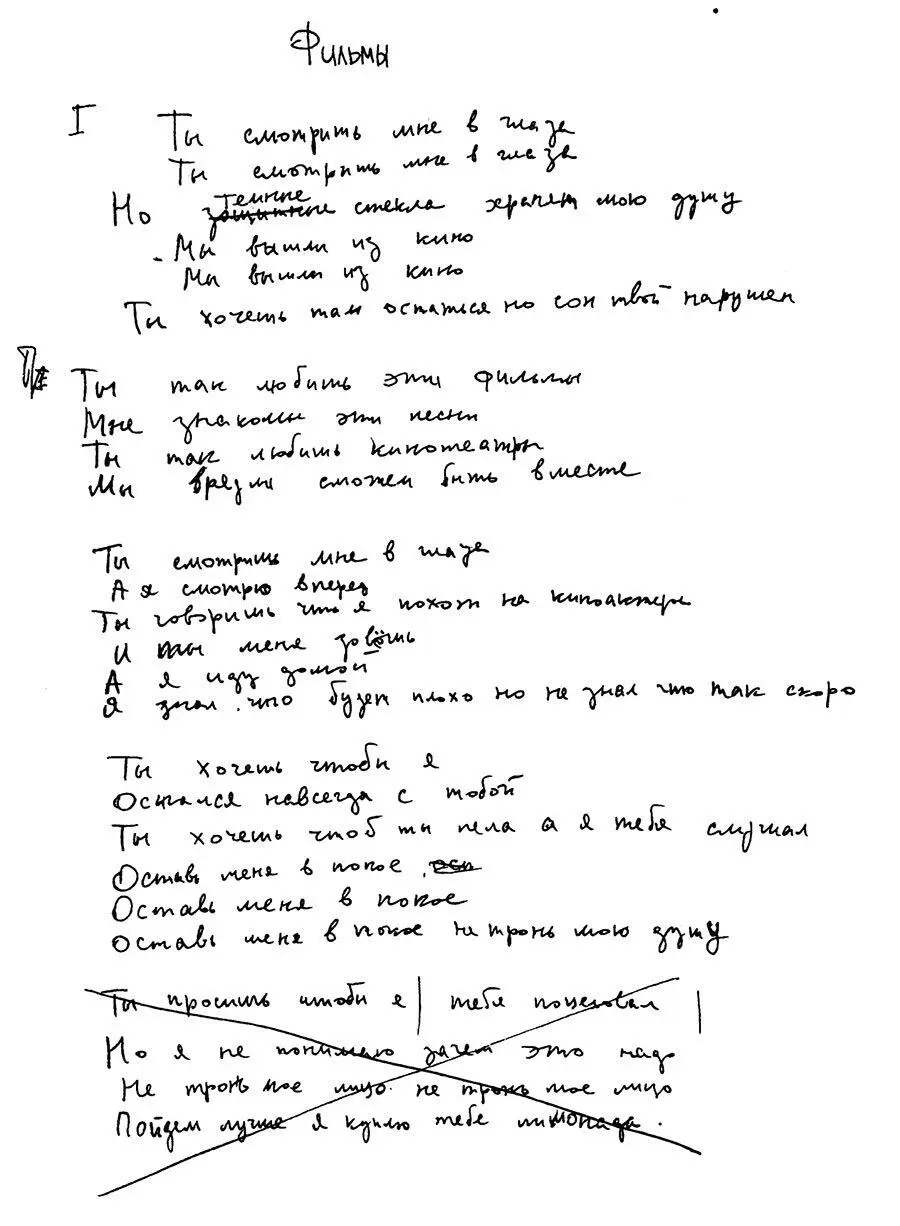 Фильмы
I Ты смотришь мне в глаза
Ты смотришь мне в глаза
Темные
Но защитные стекла хранят мою душу
Мы вышли из кино
Мы вышли из кино
Ты хочешь там остаться но сон твой нарушен
Ты так любишь эти фильмы
Мне знакомы эти песни
Ты так любишь кинотеатры
Мы врядли сможем быть вместе
Ты смотришь мне в глаза
А я смотрю вперед
Ты говоришь что я похож на киноактера
И ты меня зовёшь
А я иду домой
Я знал, что будет плохо но не знал что так скоро
Ты хочешь чтобы я
Остался навсегда с тобой
Ты хочешь чтоб ты пела а я тебя слушал
Оставь меня в покое
Оставь меня в покое
Оставь меня в покое не тронь мою душу
Ты просишь чтобы я | тебя поцеловал |
Но я не понимаю зачем это надо
Не тронь мое лицо. не тронь мое лицо
Пойдем лучше я куплю тебе лимонада.